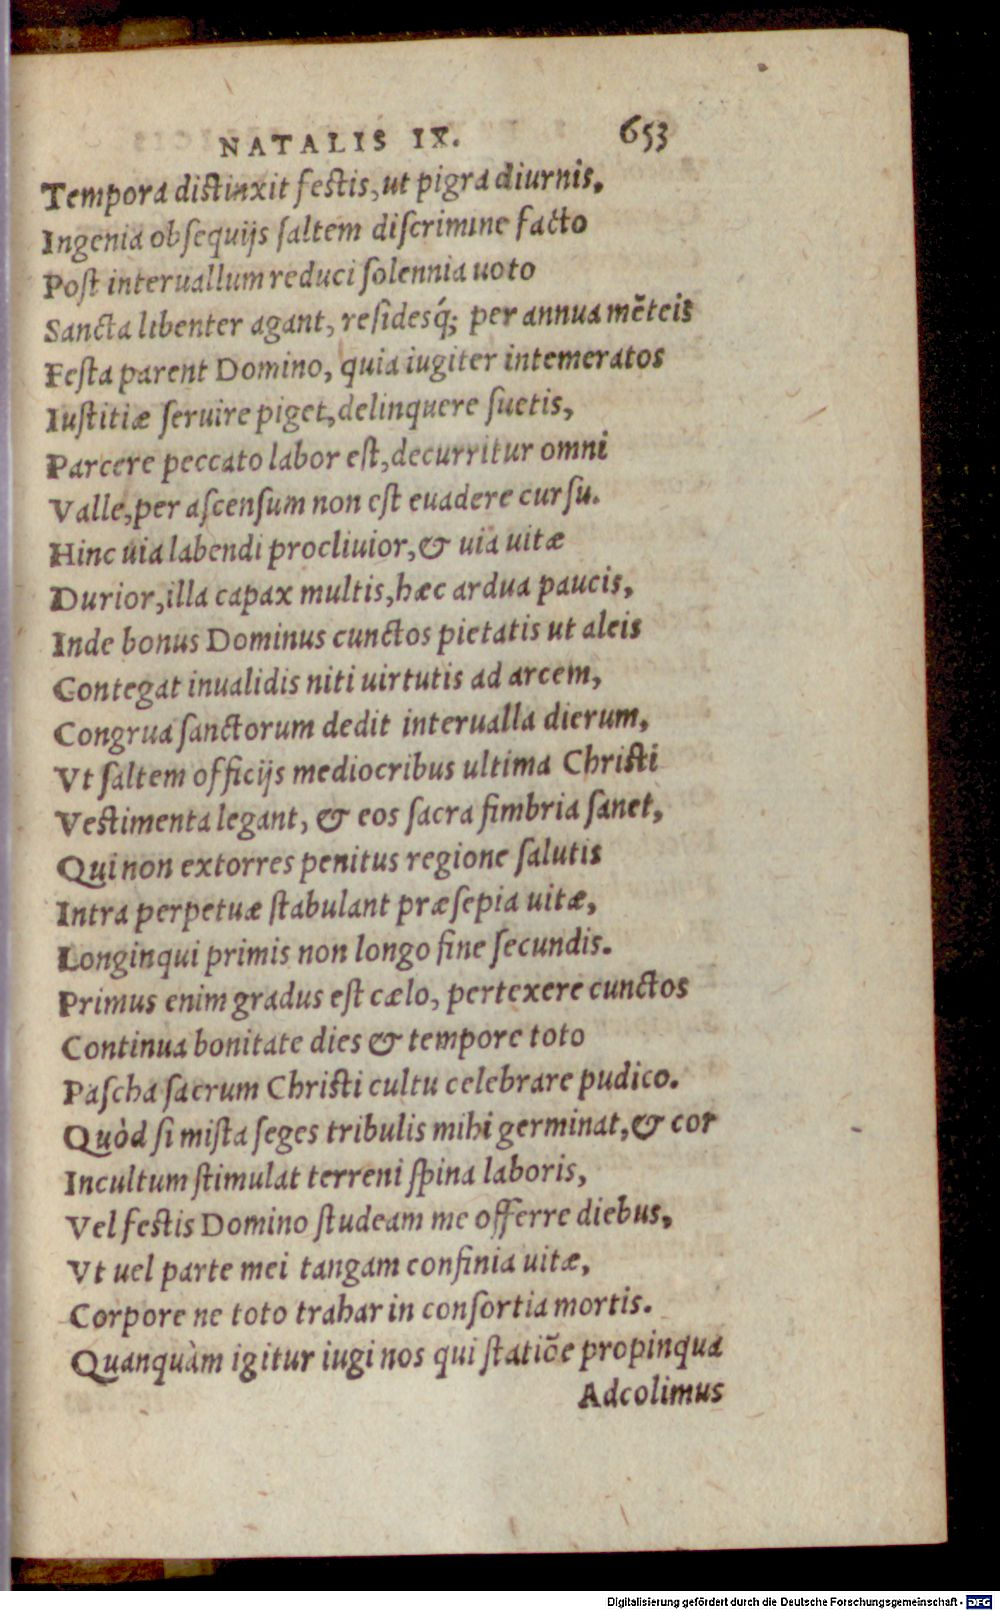 NATALIS IX. 653
Tempora distinxit festis, ut pigra diurnis,
Ingenia obsequijs saltem discrimine facto
Post interuallum reduci solennia uoto
Sancta libenter agant, residesq́; per annua mẽteis
Festa parent Domino, quia iugiter intemeratos
Iustitiæ seruire piget, delinquere suetis,
Parcere peccato labor est, decurritur omni
Valle, per ascensum non est euadere cursu.
Hinc uia labendi procliuior, & uia uitæ
Durior, illa capax multis, hæc ardua paucis,
Inde bonus Dominus cunctos pietatis ut aleis
Contegat inualidis niti uirtutis ad arcem,
Congrua sanctorum dedit interualla dierum,
Vt saltem officijs mediocribus ultima Christi
Vestimenta legant, & eos sacra fimbria sanet,
Qui non extorres penitus regione salutis
Intra perpetuæ stabulant præsepia uitæ,
Longinqui primis non longo fine secundis.
Primus enim gradus est cælo, pertexere cunctos
Continua bonitate dies & tempore toto
Pascha sacrum Christi cultu celebrare pudico.
Quòd si mista seges tribulis mihi germinat, & cor
Incultum stimulat terreni spina laboris,
Vel festis Domino studeam me offerre diebus,
Vt uel parte mei tangam confinia uitæ,
Corpore ne toto trahar in consortia mortis.
Quanquàm igitur iugi nos qui statiõe propinqua
Adcolimus
Digitalisierung gefördert durch die Deutsche Forschungsgemeinschaft - DFG